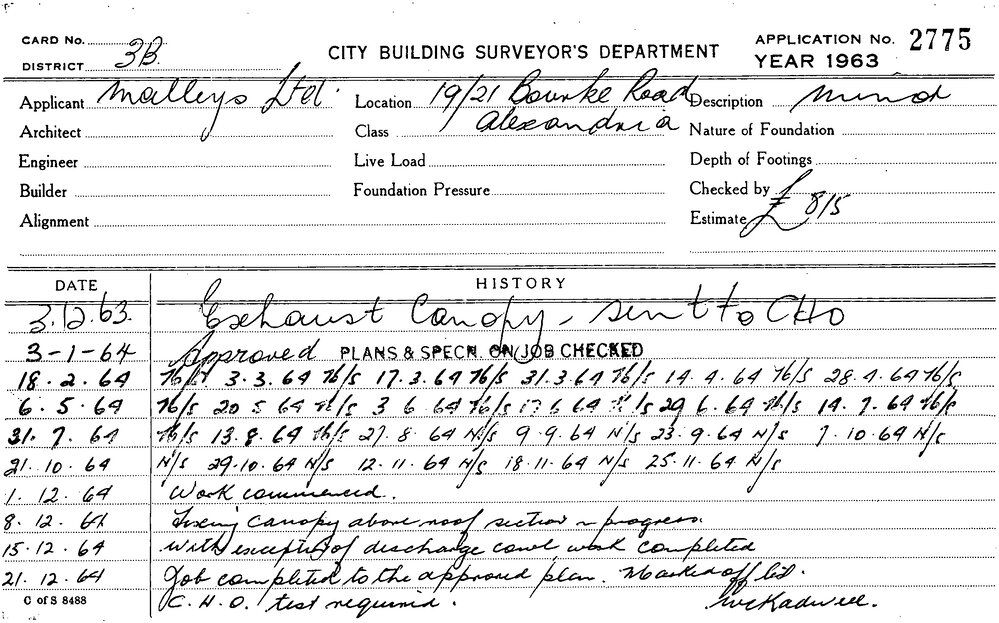 CARD No.
DISTRICT 3B.
CITY BUILDING SURVEYOR'S DEPARTMENT
APPLICATION No. 2775
YEAR 1963
Applicant Malleys Ltd.
Location 19/21 Bourke Road
Alexandria
Description Minor
Architect
Class
Nature of Foundation
Engineer
Live Load
Depth of Footings
Builder
Foundation Pressure
Checked by
Alignment
Estimate £ 815
DATE
HISTORY
3.12.63. Exhaust Canopy - sent to CHO
3-1-64 Approved PLANS & SPECN. ON JOB CHECKED
18.2.64 N/S 3.3.64 N/S 17.3.64 N/S 31.3.64 N/S 14.4.64 N/S 28.4.64 N/S
6.5.64 N/S 20 5 64 N/S 3 6 64 N/S 17 6 64 N/S 29 6.64 N/S 14.7.64 N/S
31.7.64 N/S 13.8.64 N/S 27.8 64 N/S 9-9.64 N/S 23.9.64 N/S 7.10.64 N/S
21.10.64 N/S 29.10.64 N/S 12.11.64 N/S 18.11.64 N/S 25.11.64 N/S
1.12.64 Work commenced.
8.12.64 Fixing canopy above roof section in progress.
15.12.64 With except of discharge cowl work completed
21.12.64 Job completed to the approved plan. Marked off
C of S 8488
C.H.O. test required.